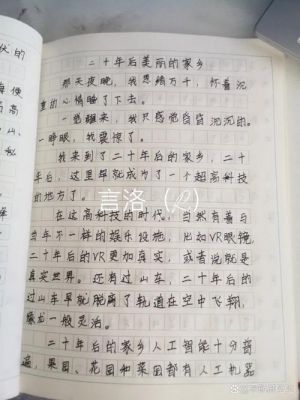 二十年后美丽的家乡
那天夜晚，我思绪万千，怀着沉
重的心情睡了下去。
一觉醒来，我只感觉自己沉沉的。
一睁眼，我震惊了。
我来到了二十年后的家乡，二十
年后，这里早就成为了一个超高科技
的地方了。
在这高科技的时代，当然有着与
当年不一样的娱乐设施，比如VR眼镜，
二十年后的VR更加真实，或者说就是
真实世界。还有过山车，二十年后的
过山车早就脱离了轨道在空中飞翔，
像龙一般灵活。
二十年后的家乡人工智能十分普
遍，果园、花园和菜园都有人工机器
伏的
便
高
山、
秘
言洛